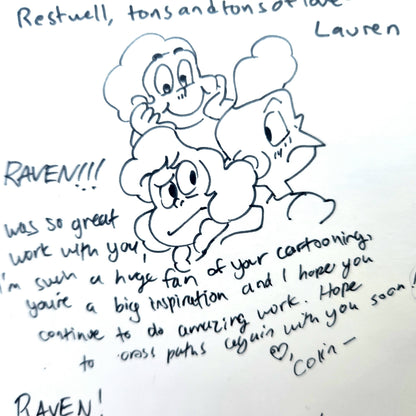 Rest well, tons and tons of love
Lauren
RAVEN!!!
was so great
work with you,
I'm such a huge fan of your cartooning,
you're a big inspiration and I hope you
continue to do amazing work. Hope
to cross paths again with you soon!
♡, Colin —
RAVEN!